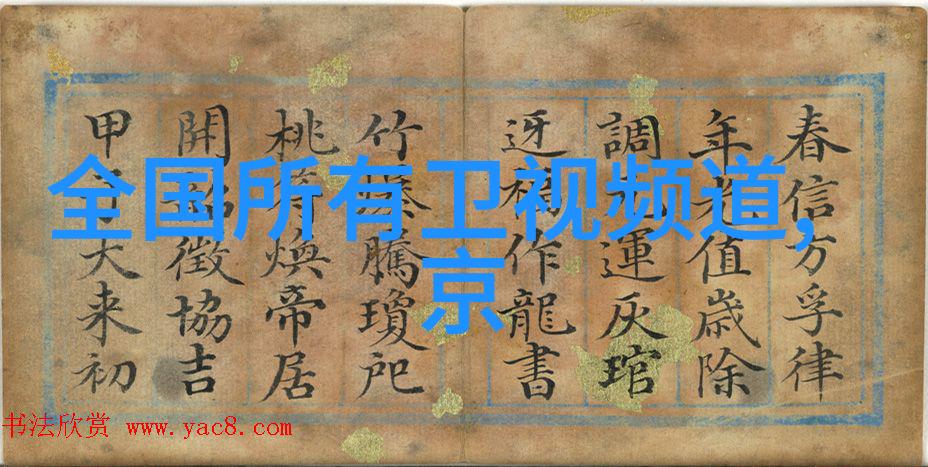 全国所有卫视频道,
京
春信方孚律
年值歲除
調運灰琯
迓福作龍書
竹騰瓊
桃符煥帝居
開韶徵協吉
甲子大来初
书法欣赏 www.yac8.com